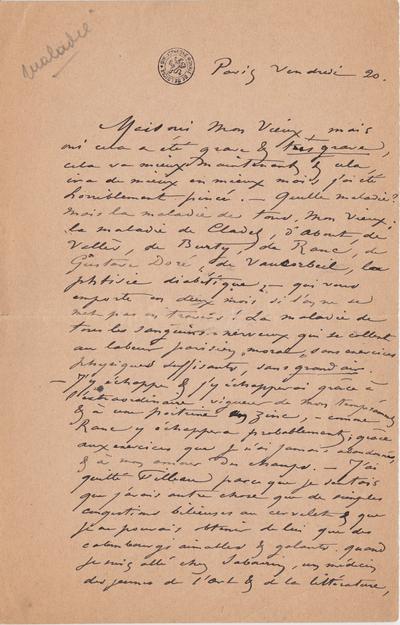 Maladie
Paris Vendredi 20.
Mais oui mon Vieux, mais
oui cela a été grave & très grave,
cela va mieux maintenant & cela
ira de mieux en mieux mais j'ai été
horriblement pincé. — Quelle maladie?
mais la maladie de tous, mon vieux!
la maladie de Cladel, d'abord, de
Vallès, de Burty, de Ranc, de
Gustave Doré, de Vaucorbeil, la
phtisie diabétique, — qui vous
emporte en deux mois si on ne se
met pas en travers! La maladie de
tous les sanguins nerveux qui se collent
au labeur parisien, moral, sans exercices
physiques suffisants, sans grand air.
— J'y échappe & j'y échapperai grâce à
l'extraordinaire vigueur de mon tempérament
& à une poitrine en zinc, — comme
Ranc y échappera probablement, grâce
aux exercices que je n'ai jamais abandonnés
& à mon amour des champs. — J'ai
quitté Filleau parce que je sentais
que j'avais autre chose que de simples
congestions bilieuses au cervelet & que
je ne pouvais obtenir de lui que des
calembourgs aimables & galants. quand
je suis allé chez un médecin
des jeunes de l'art & de la littérature,